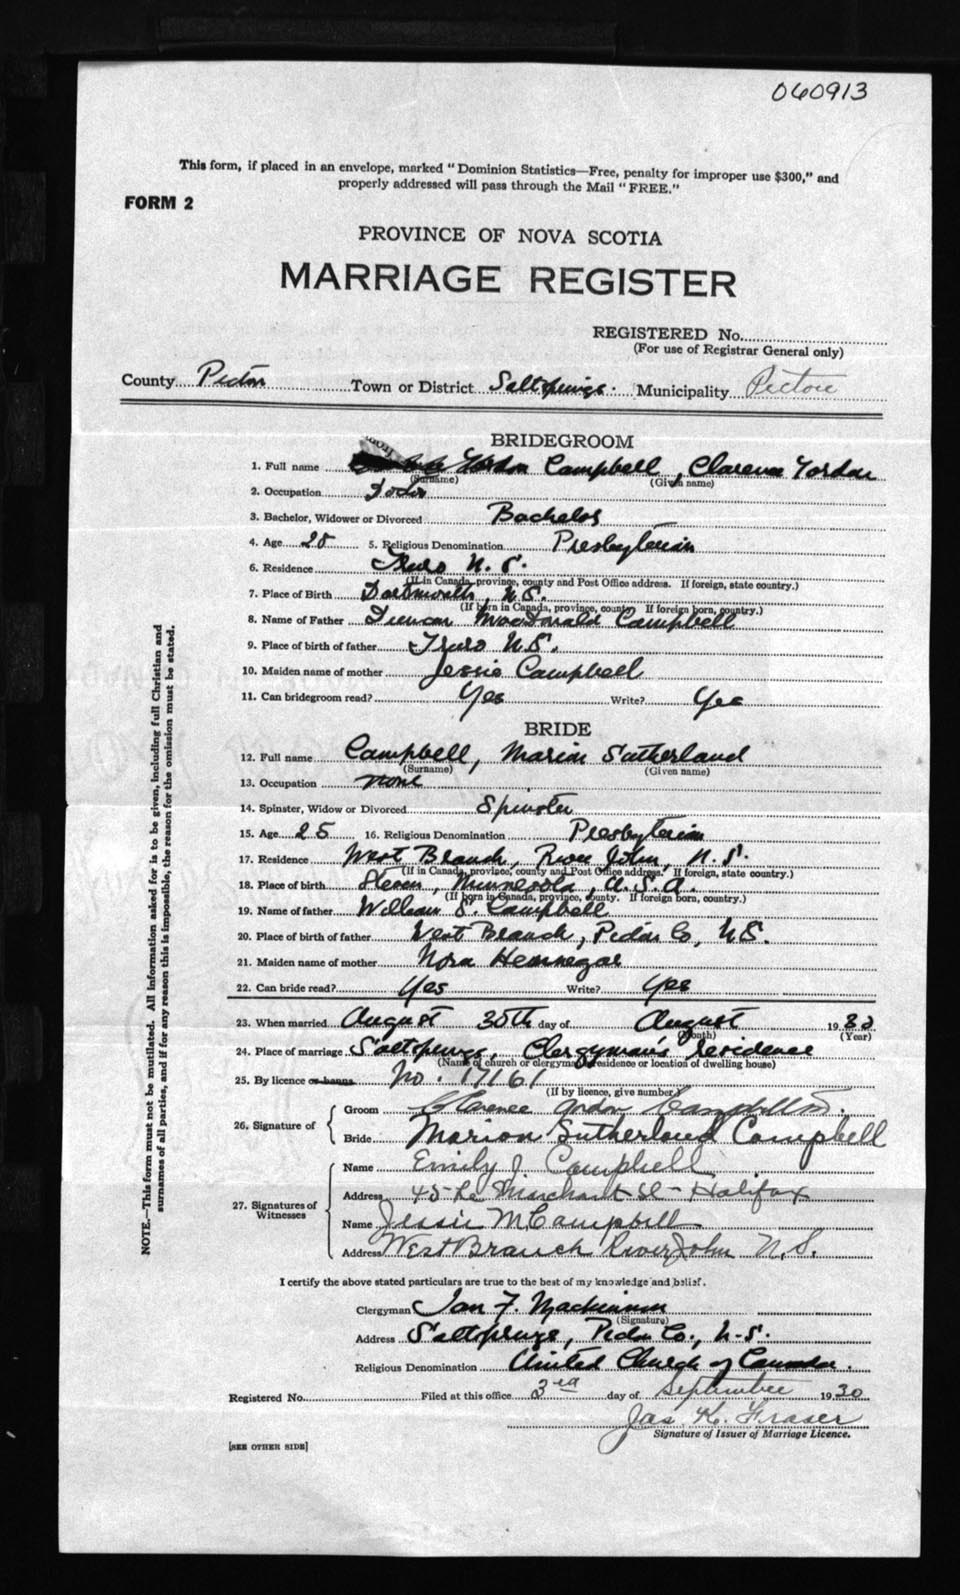 060913
This form, if placed in an envelope, marked "Dominion Statistics—Free, penalty for improper use $300," and
properly addressed will pass through the Mail "FREE."
FORM 2
PROVINCE OF NOVA SCOTIA
MARRIAGE REGISTER
REGISTERED No.
(For use of Registrar General only)
County Pictou Town or District Saltsprings. Municipality Pictou
BRIDEGROOM
1. Full name Campbell, Clarence Gordon
(Surname) (Given name)
2. Occupation Doctor
3. Bachelor, Widower or Divorced Bachelor
4. Age 28 5. Religious Denomination Presbyterian
6. Residence Truro N.S.
(If in Canada, province, county and Post Office address. If foreign, state country.)
7. Place of Birth Dartmouth, N.S.
(If born in Canada, province, county. If foreign born, county.)
8. Name of Father Duncan MacDonald Campbell
9. Place of birth of father Truro N.S.
10. Maiden name of mother Jessie Campbell
11. Can bridegroom read? Yes Write? Yes
BRIDE
12. Full name Campbell, Marion Sutherland
(Surname) (Given name)
13. Occupation none
14. Spinster, Widow or Divorced Spinster
15. Age 25 16. Religious Denomination Presbyterian
17. Residence West Branch, River John, N.S.
(If in Canada, province, county and Post Office address. If foreign, state country.)
18. Place of birth Minnesota, U.S.A.
(If born in Canada, province, county. If foreign born, country.)
19. Name of father William S. Campbell
20. Place of birth of father West Branch, Pictou Co, N.S.
21. Maiden name of mother Nora
22. Can bride read? Yes Write? Yes
23. When married August 30th day of August 19 30
(Month) (Year)
24. Place of marriage Saltsprings, Clergyman's residence
(Name of church or clergyman's residence or location of dwelling house)
25. By licence or banns No. 17161
(If by licence, give number)
26. Signature of
Groom Clarence Gordon Campbell
Bride Marion Sutherland Campbell
27. Signatures of Witnesses
Name Emily J. Campbell
Address 45 Le Marchant St - Halifax
Name Jessie M Campbell
Address West Branch River John N.S.
I certify the above stated particulars are true to the best of my knowledge and belief.
Clergyman Ian F. MacKinnon
(Signature)
Address Saltsprings, Pictou Co., N.S.
Religious Denomination United Church of Canada.
Registered No. Filed at this office 3rd day of September 1930
Jas. K. Fraser
Signature of Issuer of Marriage Licence.
[SEE OTHER SIDE]
NOTE.—This form must not be mutilated. All information asked for is to be given, including full Christian and
surnames of all parties, and if for any reason this is impossible, the reason for the omission must be stated.